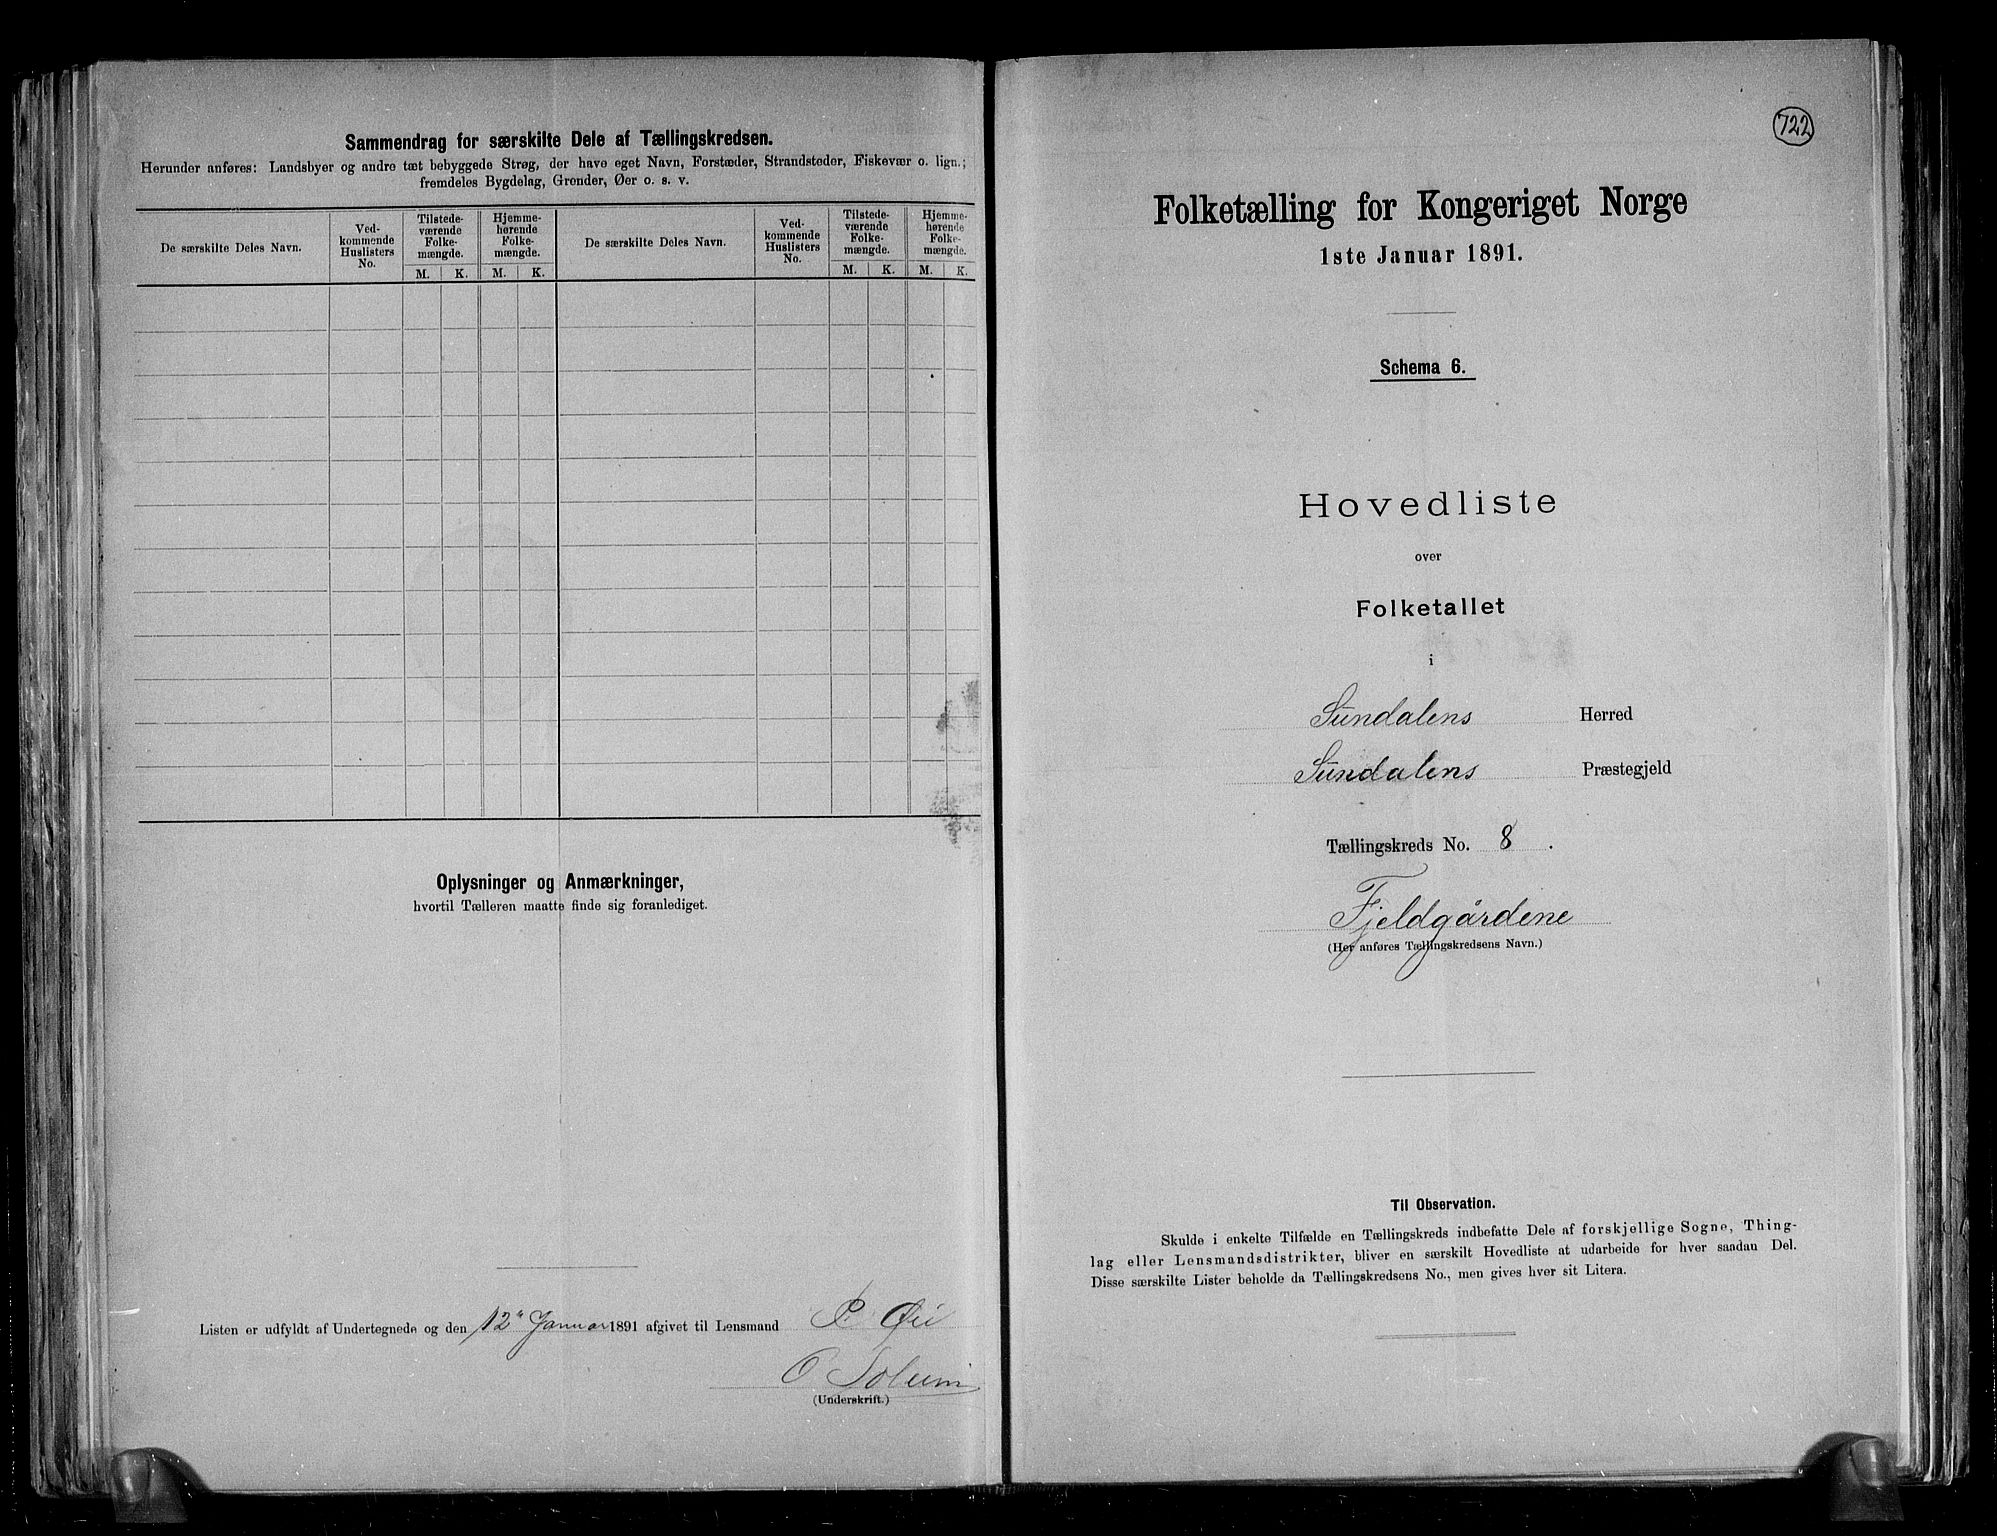 Sammendrag for særskilte Dele af Tællingskredsen.
Herunder anføres: Landsbyer og andre tæt bebyggede Strøg, der have eget Navn, Forstæder, Strandsteder, Fiskevær o. lign.;
fremdeles Bygdelag, Grender, Øer o. s. v.
De særskilte Deles Navn.
Ved-
kommende
Huslisters
No.
Tilstede-
værende
Folke-
mængde.
M. K.
Hjemme-
hørende
Folke-
mængde.
M. K.
De særskilte Deles Navn.
Ved-
kommende
Huslisters
No.
Tilstede-
værende
Folke-
mængde.
M. K.
Hjemme-
hørende
Folke-
mængde.
M. K.
Oplysninger og Anmærkninger,
hvortil Tælleren maatte finde sig foranlediget.
Listen er udfyldt af Undertegnede og den 12" Januar 1891 afgivet til Lensmand P Øie
O Solum
(Underskrift.)
722
Folketælling for Kongeriget Norge
1ste Januar 1891.
Schema 6.
Hovedliste
over
Folketallet
i
Sundalens Herred
Sundalens Præstegjeld
Tællingskreds No. 8.
Fjeldgårdene
(Her anføres Tællingskredsens Navn.)
Til Observation.
Skulde i enkelte Tilfælde en Tællingskreds indbefatte Dele af forskjellige Sogne, Thing-
lag eller Lensmandsdistrikter, bliver en særskilt Hovedliste at udarbeide for hver saadan Del.
Disse særskilte Lister beholde da Tællingskredsens No., men gives hver sit Litera.